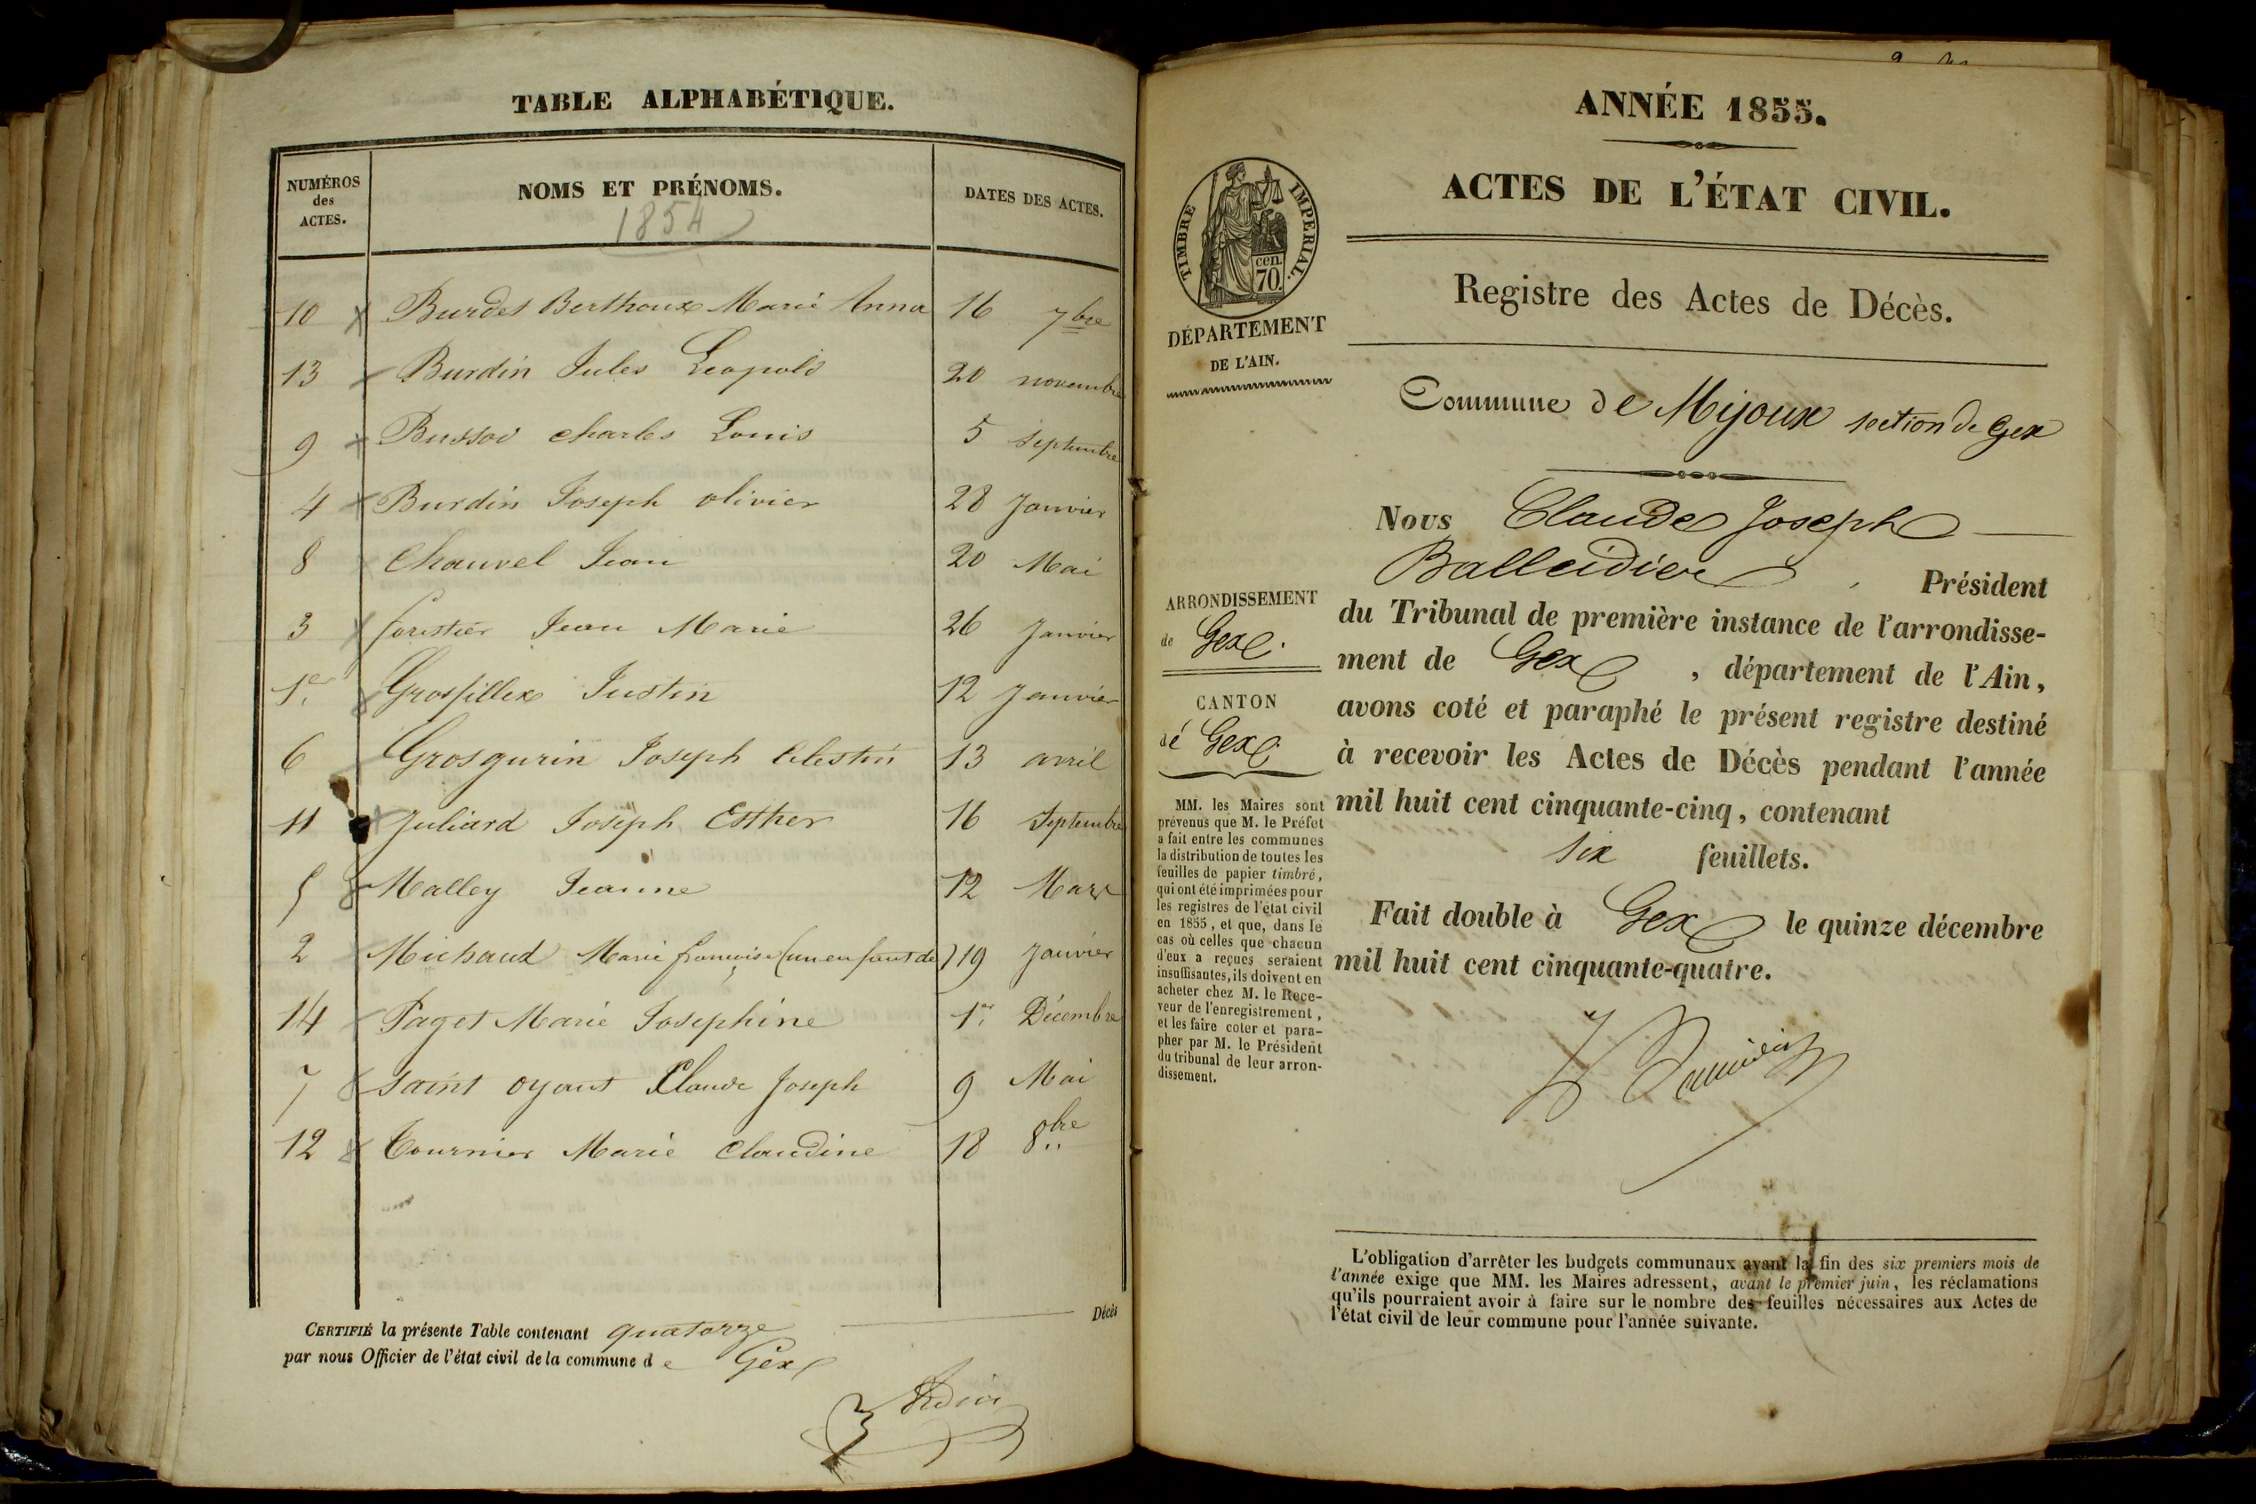 TABLE ALPHABÉTIQUE.
NUMÉROS
des
ACTES.
NOMS ET PRÉNOMS.
1854
DATES DES ACTES.
10 Burdet Berthoux Marie Anna 16 7bre
13 Burdin Jules Leopold 20 novembre
9 Bussod charles Louis 5 septembre
4 Burdin Joseph olivier 28 Janvier
8 Chauvel Jean 20 Mai
3 forestier Jean Marie 26 Janvier
1er Grosfillex Justin 12 Janvier
6 Grosgurin Joseph Celestin 13 avril
11 Juliard Joseph Esther 16 Septembre
5 Malley Jeanne 12 Mars
2 Michaud Marie françoise (un enfant de) 19 Janvier
14 Paget Marie Josephine 1er Décembre
7 Saint oyant Claude Joseph 9 Mai
12 Tournier Marie Claudine 18 8bre
CERTIFIÉ la présente Table contenant quatorze Décès
par nous Officier de l'état civil de la commune de Gex
ANNÉE 1855.
ACTES DE L'ÉTAT CIVIL.
TIMBRE IMPERIAL.
cen.
70.
DÉPARTEMENT
DE L'AIN.
Registre des Actes de Décès.
Commune de Mijoux section de Gex
Nous Claude Joseph
Balleidier, Président
du Tribunal de première instance de l'arrondisse-
ment de Gex, département de l'Ain,
avons coté et paraphé le présent registre destiné
à recevoir les Actes de Décès pendant l'année
mil huit cent cinquante-cinq, contenant
six feuillets.
Fait double à Gex le quinze décembre
mil huit cent cinquante-quatre.
ARRONDISSEMENT
de Gex.
CANTON
dé Gex.
MM. les Maires sont
prévenus que M. le Préfet
a fait entre les communes
la distribution de toutes les
feuilles de papier timbré,
qui ont été imprimées pour
les registres de l'état civil
en 1855, et que, dans le
cas où celles que chacun
d'eux a reçues seraient
insuffisantes, ils doivent en
acheter chez M. le Rece-
veur de l'enregistrement,
et les faire coter et para-
pher par M. le Président
du tribunal de leur arron-
dissement.
L'obligation d'arrêter les budgets communaux avant la fin des six premiers mois de
l'année exige que MM. les Maires adressent, avant le premier juin, les réclamations
qu'ils pourraient avoir à faire sur le nombre des feuilles nécessaires aux Actes de
l'état civil de leur commune pour l'année suivante.